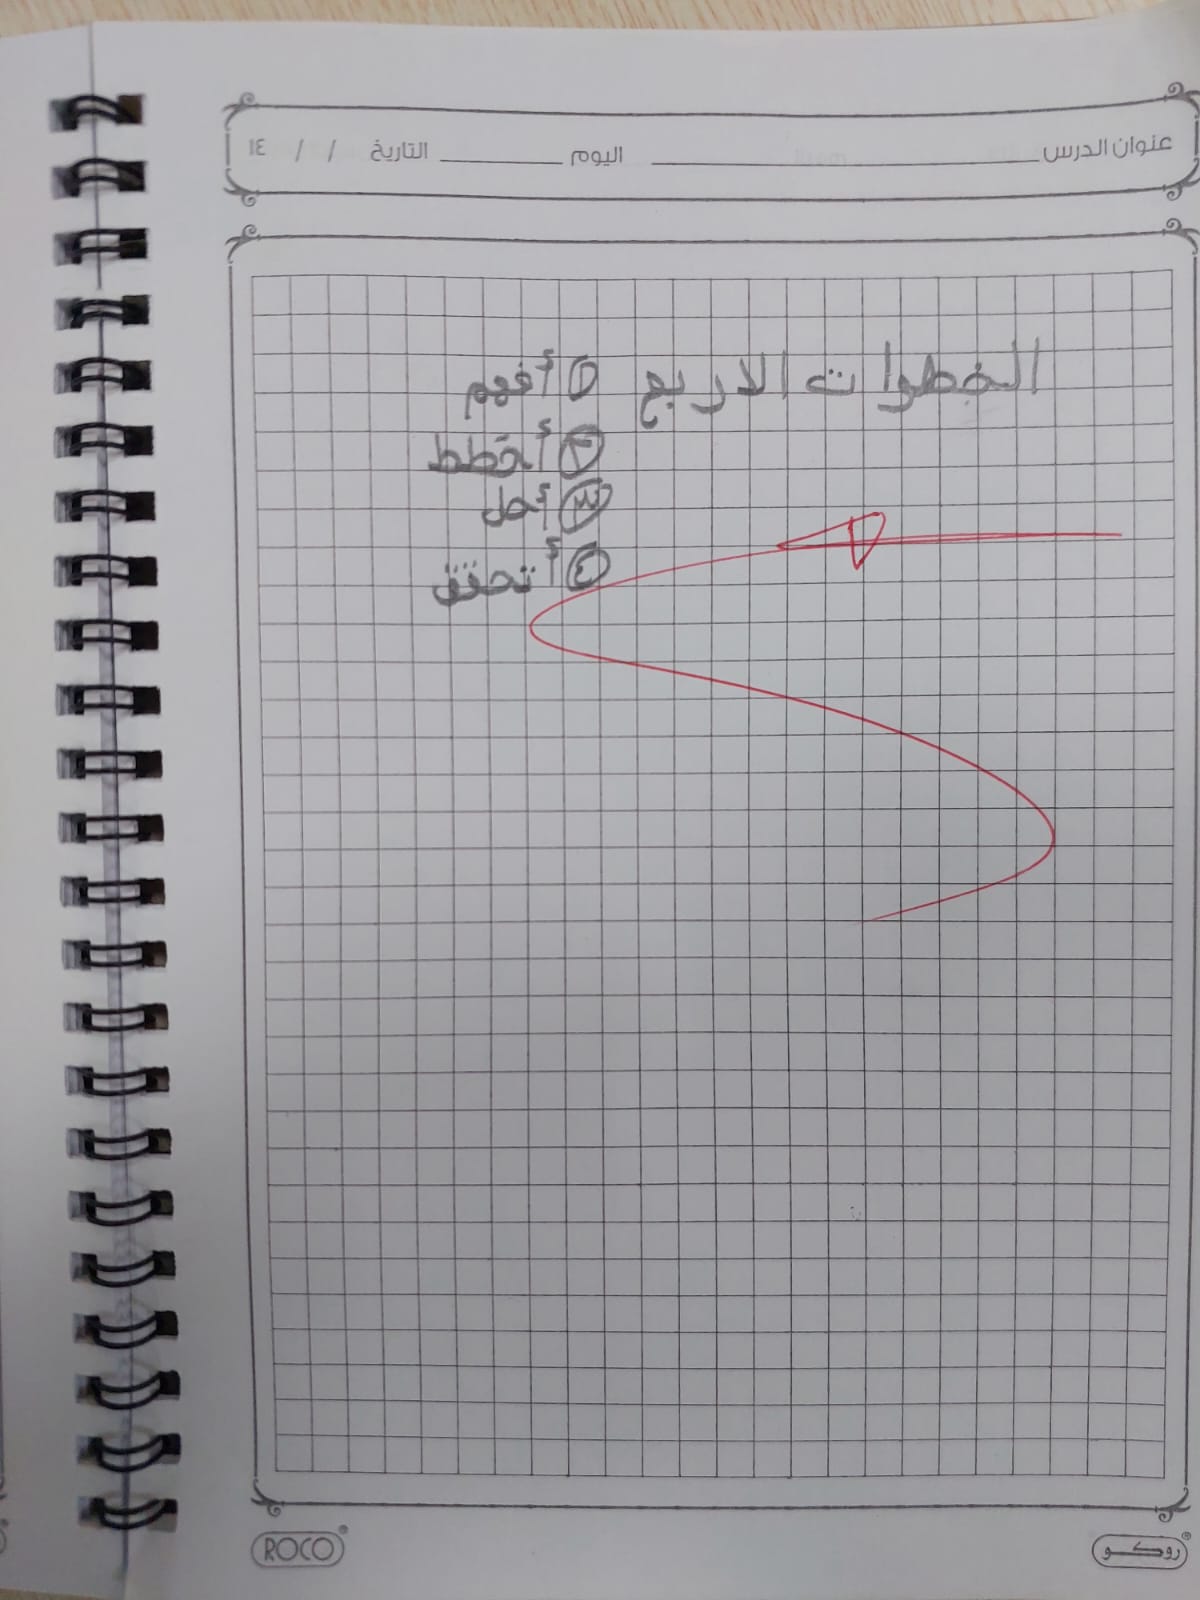 عنوان الدرس اليوم التاريخ / / ١٤
الخطوات الاربع ① أفهم
② أخطط
③ أحل
④ أتحقق
ROCO روكو